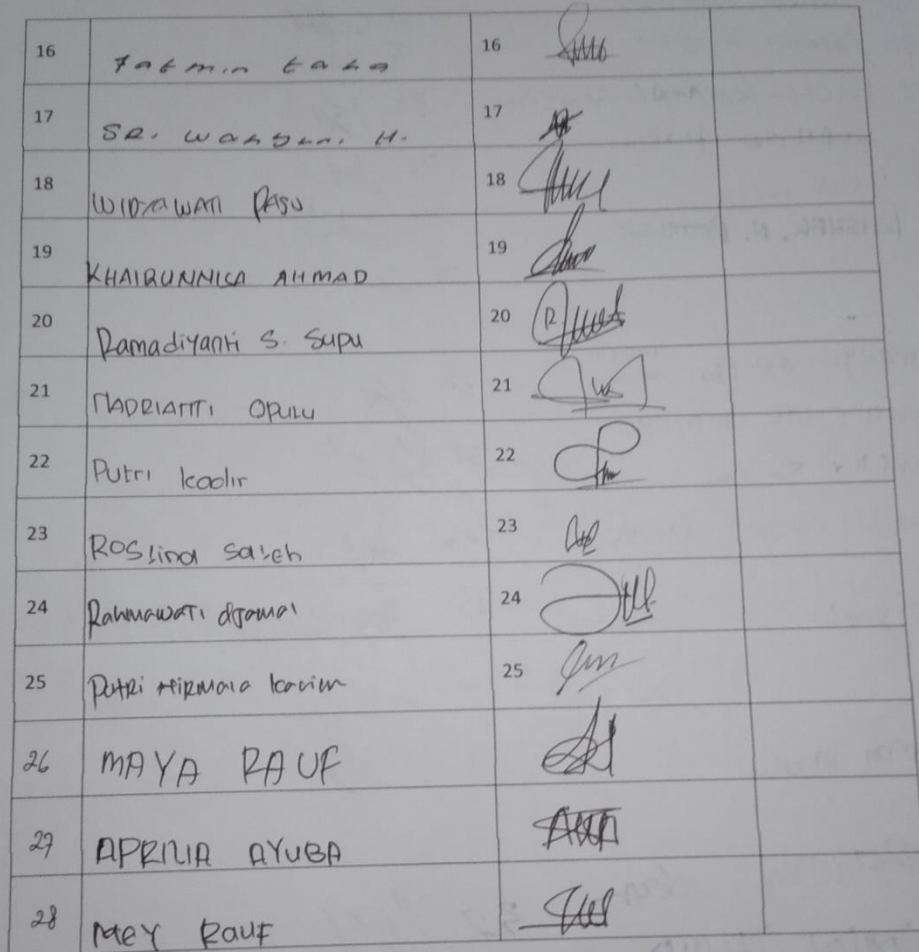 16 Fatmin taha 16
17 SR. Wahyuni H. 17
18 WIDYAWATI PASU 18
19 KHAIRUNNISA AHMAD 19
20 Ramadiyanti S. Supu 20
21 MADRIANTI OPULU 21
22 Putri kadir 22
23 Roslina Saleh 23
24 Rahmawati djamal 24
25 Putri Nirmala karim 25
26 MAYA RAUF
27 APRILIA AYUBA
28 MEY RAUF